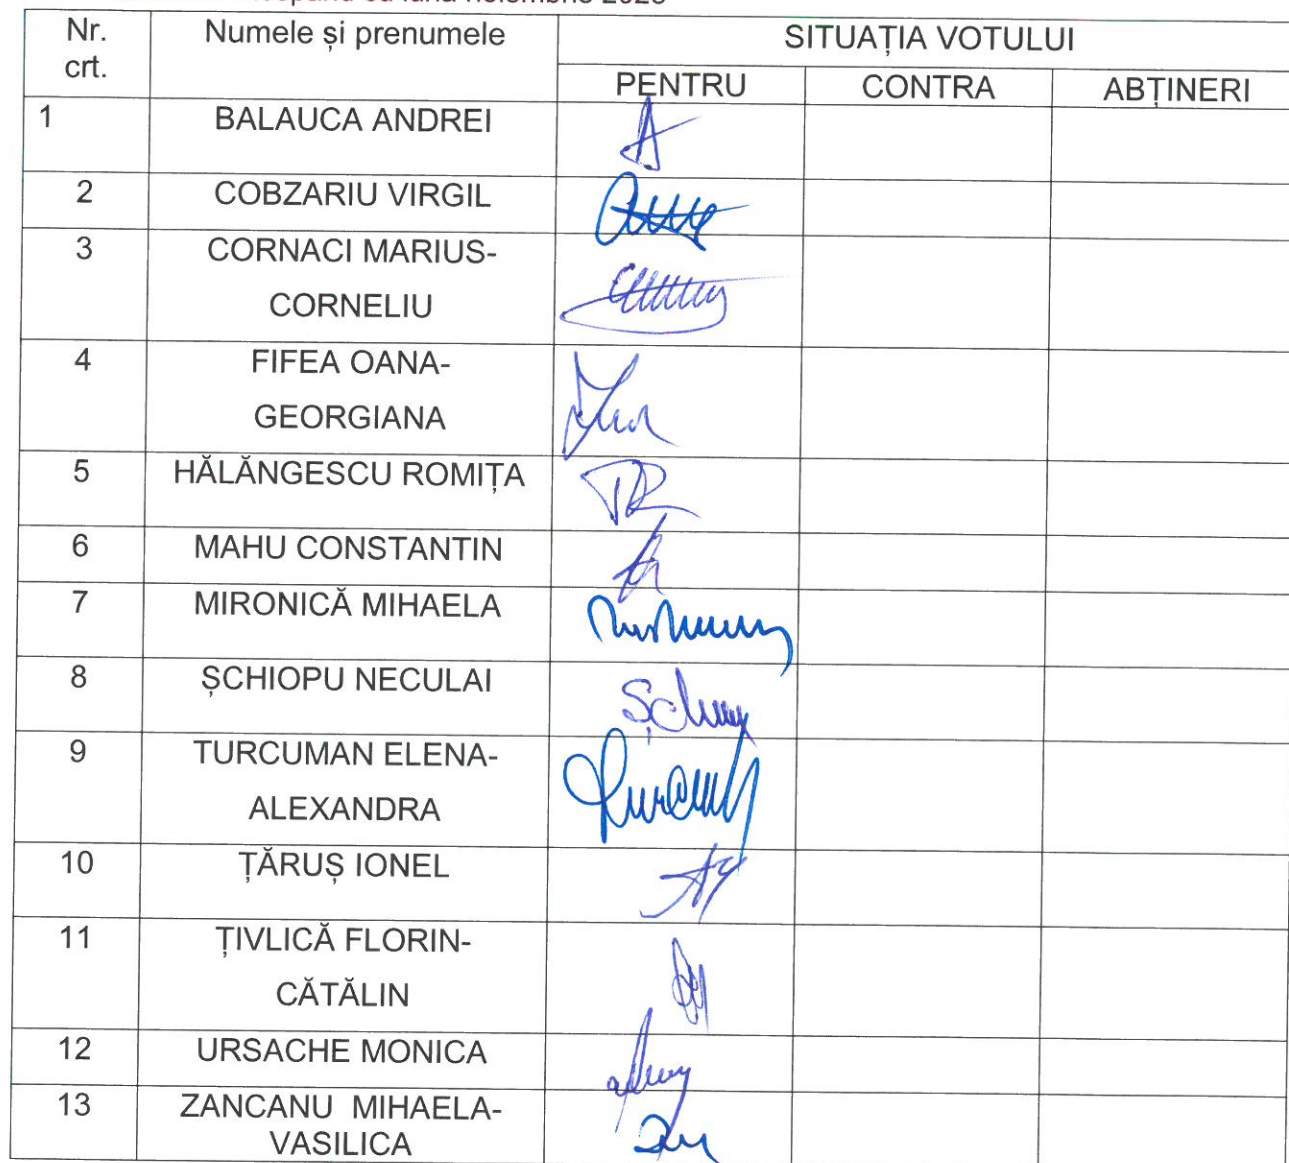 luna noiembrie 2025
Nr. crt. Numele și prenumele SITUAȚIA VOTULUI
PENTRU CONTRA ABȚINERI
1 BALAUCA ANDREI
2 COBZARIU VIRGIL
3 CORNACI MARIUS-
CORNELIU
4 FIFEA OANA-
GEORGIANA
5 HĂLĂNGESCU ROMIȚA
6 MAHU CONSTANTIN
7 MIRONICĂ MIHAELA
8 ȘCHIOPU NECULAI
9 TURCUMAN ELENA-
ALEXANDRA
10 ȚĂRUȘ IONEL
11 ȚIVLICĂ FLORIN-
CĂTĂLIN
12 URSACHE MONICA
13 ZANCANU MIHAELA-
VASILICA